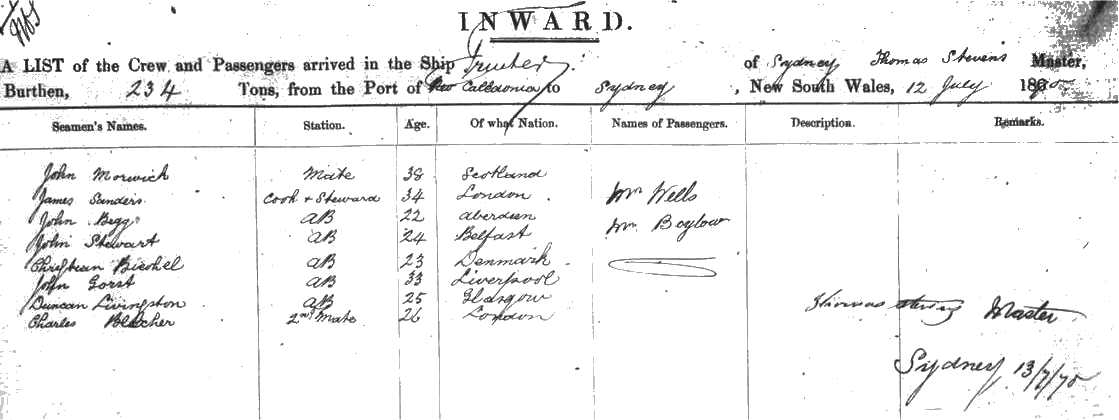 INWARD.
A LIST of the Crew and Passengers arrived in the Ship of Sydney Thomas Stevens Master,
Burthen, 234 Tons, from the Port of New Caledonia to Sydney, New South Wales, 12 July 1870
Seamen's Names. Station. Age. Of what Nation. Names of Passengers. Description. Remarks.
John Morwick Mate 38 Scotland
James Sanders Cook + Steward 34 London Mr Wells
John Begg AB 22 Aberdeen Mr Boylow
John Stewart AB 24 Belfast
Christian AB 23 Denmark
John Gorst AB 33 Liverpool
Duncan Livingston AB 25 Glasgow
Charles 2nd Mate 26 London
Thomas Stevens Master
Sydney 13/7/70